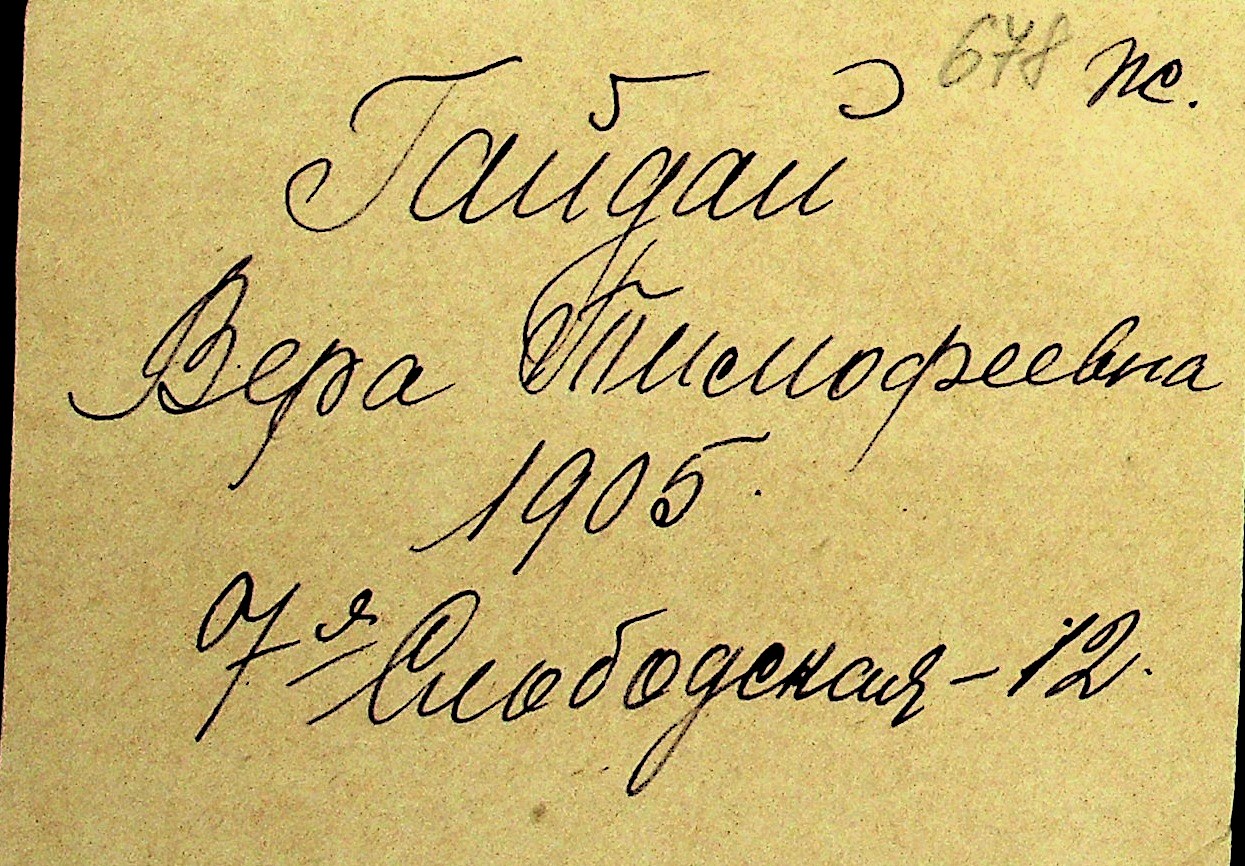 678 ж.
Гайдай
Вера Тимофеевна
1905.
7я Слободская - 12.